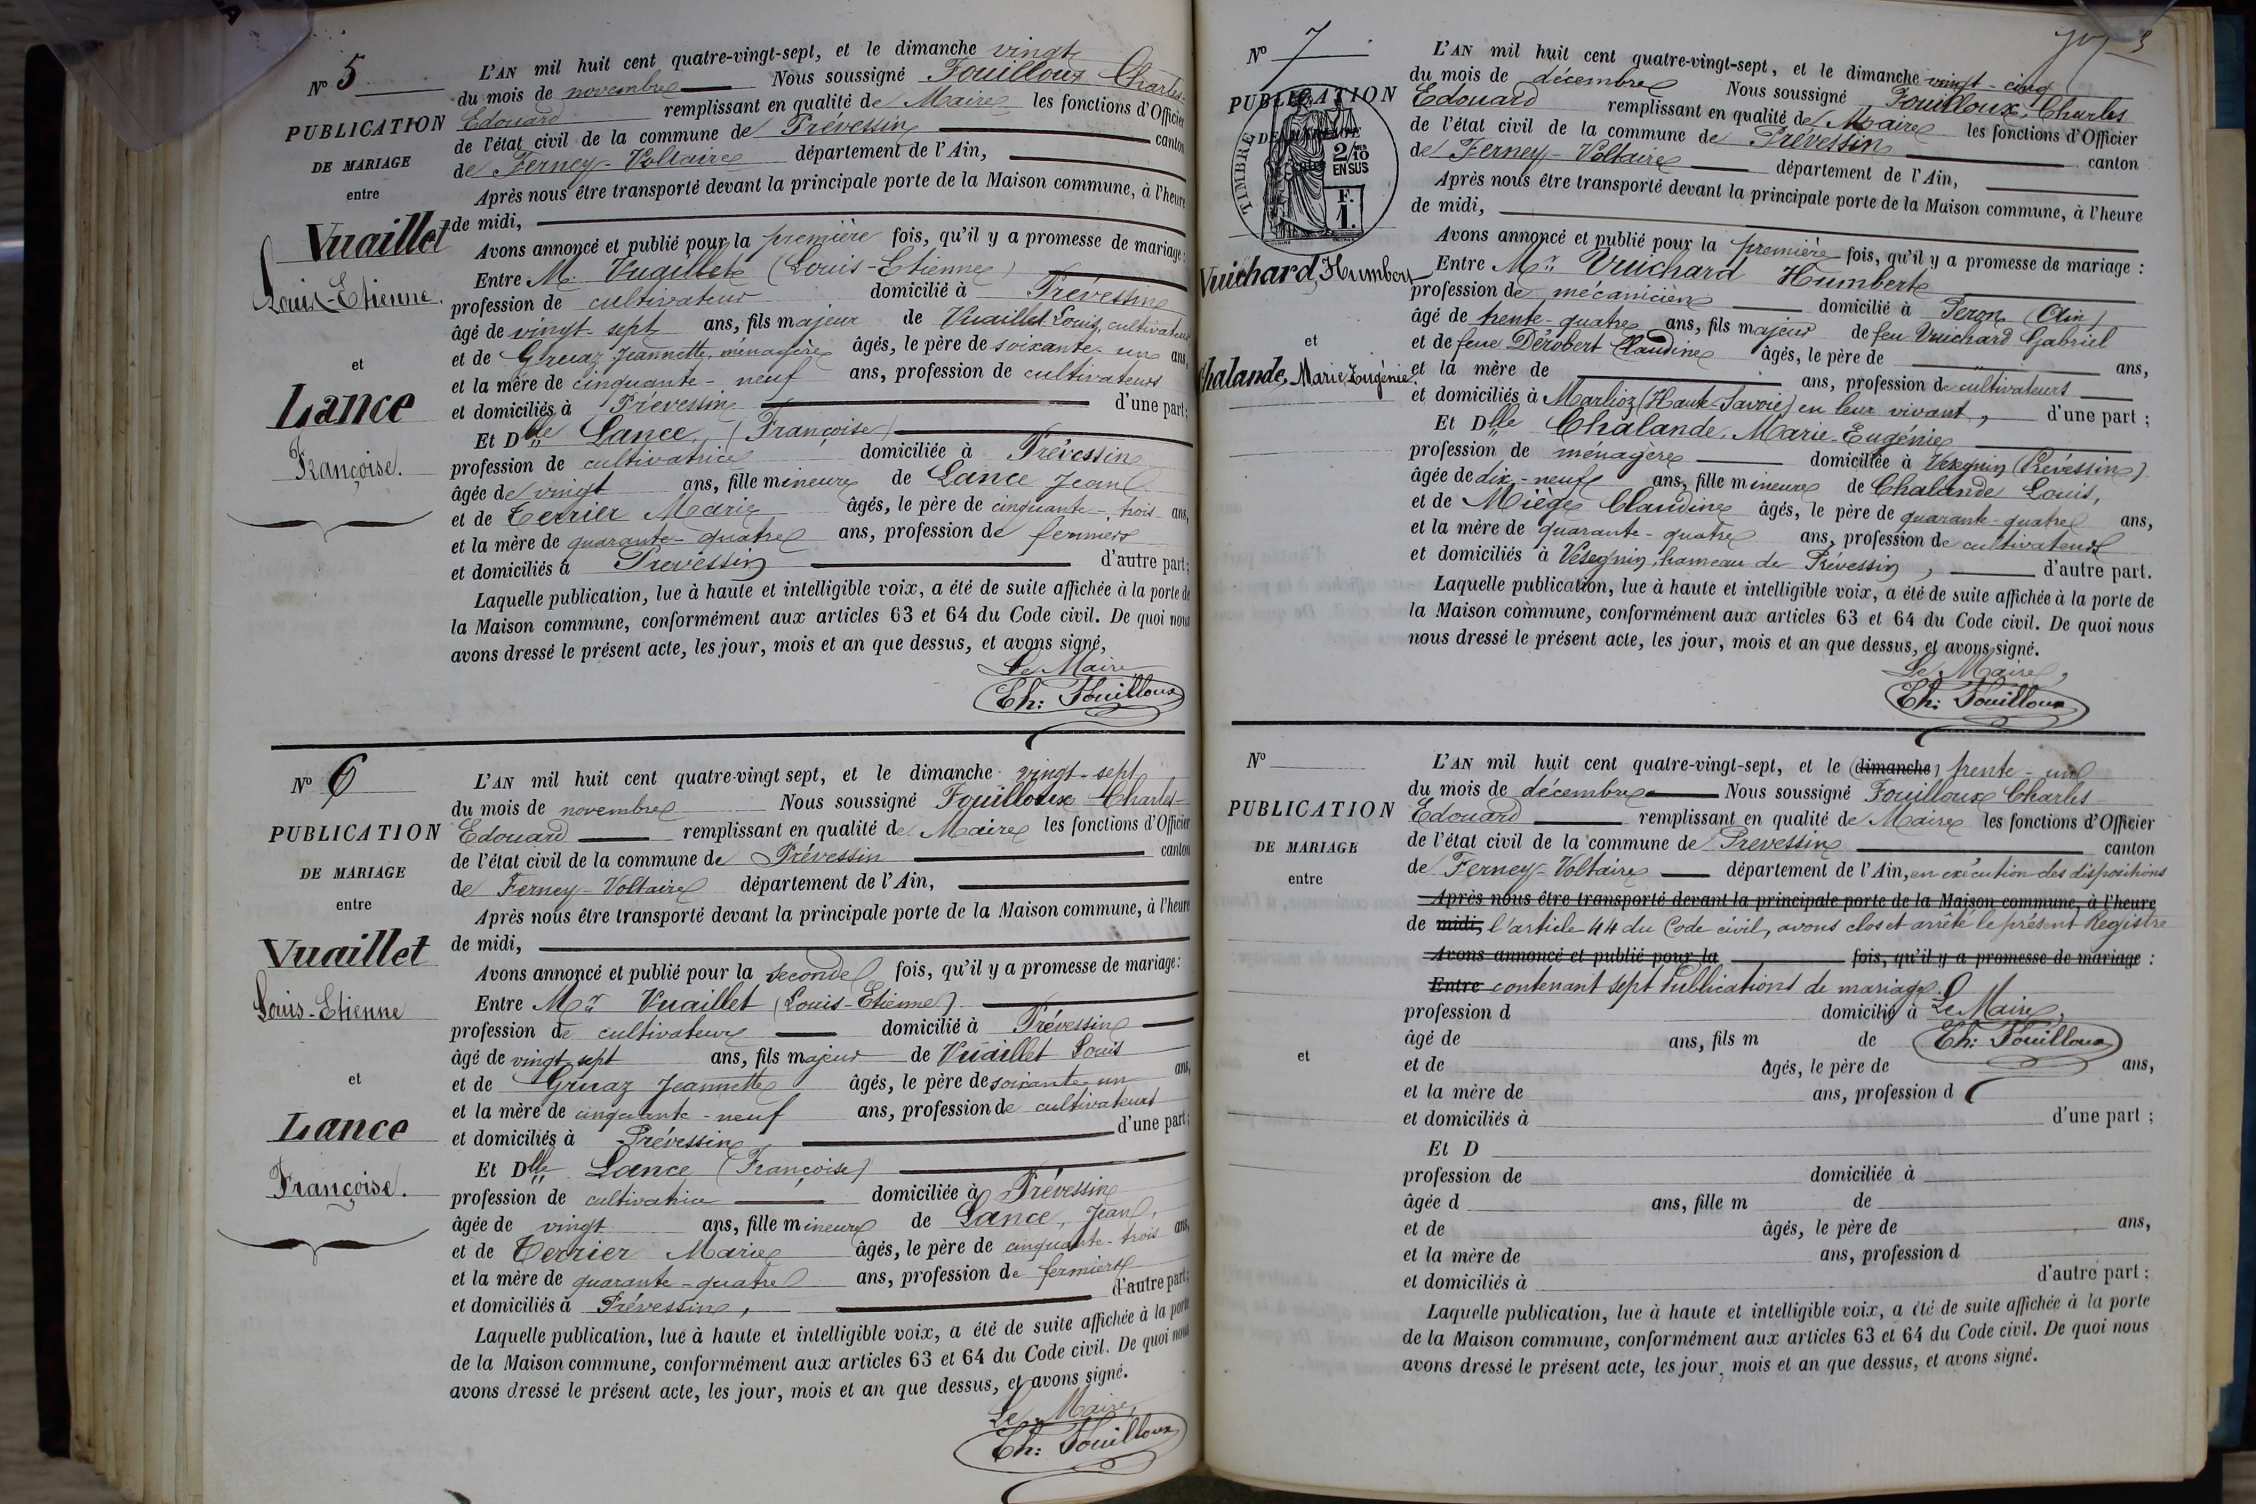 N° 5
PUBLICATION
DE MARIAGE
entre
Vuaillet
Louis-Etienne.
et
Lance
Françoise.
L'AN mil huit cent quatre-vingt-sept, et le dimanche vingt
du mois de novembre Nous soussigné Fouilloux Charles-
Edouard remplissant en qualité de Maire les fonctions d'Officier
de l'état civil de la commune de Prévessin canton
de Ferney-Voltaire département de l'Ain,
Après nous être transporté devant la principale porte de la Maison commune, à l'heure
de midi,
Avons annoncé et publié pour la première fois, qu'il y a promesse de mariage :
Entre M. Vuaillet (Louis-Etienne)
profession de cultivateur domicilié à Prévessin
âgé de vingt-sept ans, fils majeur de Vuaillet Louis, cultivateur
et de Gruaz Jeannette, ménagère âgés, le père de soixante-un ans,
et la mère de cinquante-neuf ans, profession de cultivateurs
et domiciliés à Prévessin d'une part;
Et Dlle Lance, (Françoise)
profession de cultivatrice domiciliée à Prévessin
âgée de vingt ans, fille mineure de Lance Jean
et de Terrier Marie âgés, le père de cinquante-trois ans,
et la mère de quarante-quatre ans, profession de fermiers
et domiciliés à Prevessin d'autre part;
Laquelle publication, lue à haute et intelligible voix, a été de suite affichée à la porte de
la Maison commune, conformément aux articles 63 et 64 du Code civil. De quoi nous
avons dressé le présent acte, les jour, mois et an que dessus, et avons signé,
Le Maire
Ch: Fouilloux
N° 6
PUBLICATION
DE MARIAGE
entre
Vuaillet
Louis-Etienne
et
Lance
Françoise.
L'AN mil huit cent quatre-vingt sept, et le dimanche vingt-sept
du mois de novembre Nous soussigné Fouilloux Charles-
Edouard remplissant en qualité de Maire les fonctions d'Officier
de l'état civil de la commune de Prévessin canton
de Ferney-Voltaire département de l'Ain,
Après nous être transporté devant la principale porte de la Maison commune, à l'heure
de midi,
Avons annoncé et publié pour la seconde fois, qu'il y a promesse de mariage :
Entre Mr Vuaillet (Louis-Etienne)
profession de cultivateur domicilié à Prévessin
âgé de vingt sept ans, fils majeur de Vuaillet Louis
et de Gruaz Jeannette âgés, le père de soixante-un ans,
et la mère de cinquante-neuf ans, profession de cultivateurs
et domiciliés à Prévessin d'une part;
Et Dlle Lance (Françoise)
profession de cultivatrice domiciliée à Prévessin
âgée de vingt ans, fille mineure de Lance, Jean,
et de Terrier Marie âgés, le père de cinquante-trois ans,
et la mère de quarante-quatre ans, profession de fermiers
et domiciliés à Prévessin, d'autre part;
Laquelle publication, lue à haute et intelligible voix, a été de suite affichée à la porte
de la Maison commune, conformément aux articles 63 et 64 du Code civil. De quoi nous
avons dressé le présent acte, les jour, mois et an que dessus, et avons signé.
Le Maire,
Ch: Fouilloux
3
N° 7
PUBLICATION
DE MARIAGE
TIMBRE
2/10
EN SUS
F.
1.
Vuichard, Humbert
et
Chalande, Marie Eugénie.
L'AN mil huit cent quatre-vingt-sept, et le dimanche vingt-cinq
du mois de décembre Nous soussigné Fouilloux, Charles
Edouard remplissant en qualité de Maire les fonctions d'Officier
de l'état civil de la commune de Prévessin canton
de Ferney-Voltaire département de l'Ain,
Après nous être transporté devant la principale porte de la Maison commune, à l'heure
de midi,
Avons annoncé et publié pour la première fois, qu'il y a promesse de mariage :
Entre Mr Vuichard Humbert
profession de mécanicien domicilié à Peron (Ain)
âgé de trente-quatre ans, fils majeur de feu Vuichard Gabriel
et de feue Dérobert Claudine âgés, le père de ans,
et la mère de ans, profession de cultivateurs
et domiciliés à Marlioz (Haute-Savoie) en leur vivant, d'une part ;
Et Dlle Chalande, Marie-Eugénie
profession de ménagère domiciliée à Vésegnin (Prévessin)
âgée de dix-neuf ans, fille mineure de Chalande Louis,
et de Miège Claudine âgés, le père de quarante-quatre ans,
et la mère de quarante-quatre ans, profession de cultivateurs
et domiciliés à Vésegnin, hameau de Prévessin, d'autre part.
Laquelle publication, lue à haute et intelligible voix, a été de suite affichée à la porte de
la Maison commune, conformément aux articles 63 et 64 du Code civil. De quoi nous
nous dressé le présent acte, les jour, mois et an que dessus, et avons signé.
Le Maire,
Ch: Fouilloux
N°
PUBLICATION
DE MARIAGE
entre
et
L'AN mil huit cent quatre-vingt-sept, et le (dimanche) trente-un
du mois de décembre Nous soussigné Fouilloux Charles-
Edouard remplissant en qualité de Maire les fonctions d'Officier
de l'état civil de la commune de Prevessin canton
de Ferney-Voltaire département de l'Ain, en exécution des dispositions
Après nous être transporté devant la principale porte de la Maison commune, à l'heure
de midi, l'article 44 du Code civil, avons clos et arrêté le présent Registre
Avons annoncé et publié pour la fois, qu'il y a promesse de mariage :
Entre contenant sept Publications de mariage.
profession d domicilié à Le Maire,
âgé de ans, fils m de Ch: Fouilloux
et de âgés, le père de ans,
et la mère de ans, profession d
et domiciliés à d'une part ;
Et D
profession de domiciliée à
âgée d ans, fille m de
et de âgés, le père de ans,
et la mère de ans, profession d
et domiciliés à d'autre part ;
Laquelle publication, lue à haute et intelligible voix, a été de suite affichée à la porte
de la Maison commune, conformément aux articles 63 et 64 du Code civil. De quoi nous
avons dressé le présent acte, les jour, mois et an que dessus, et avons signé.